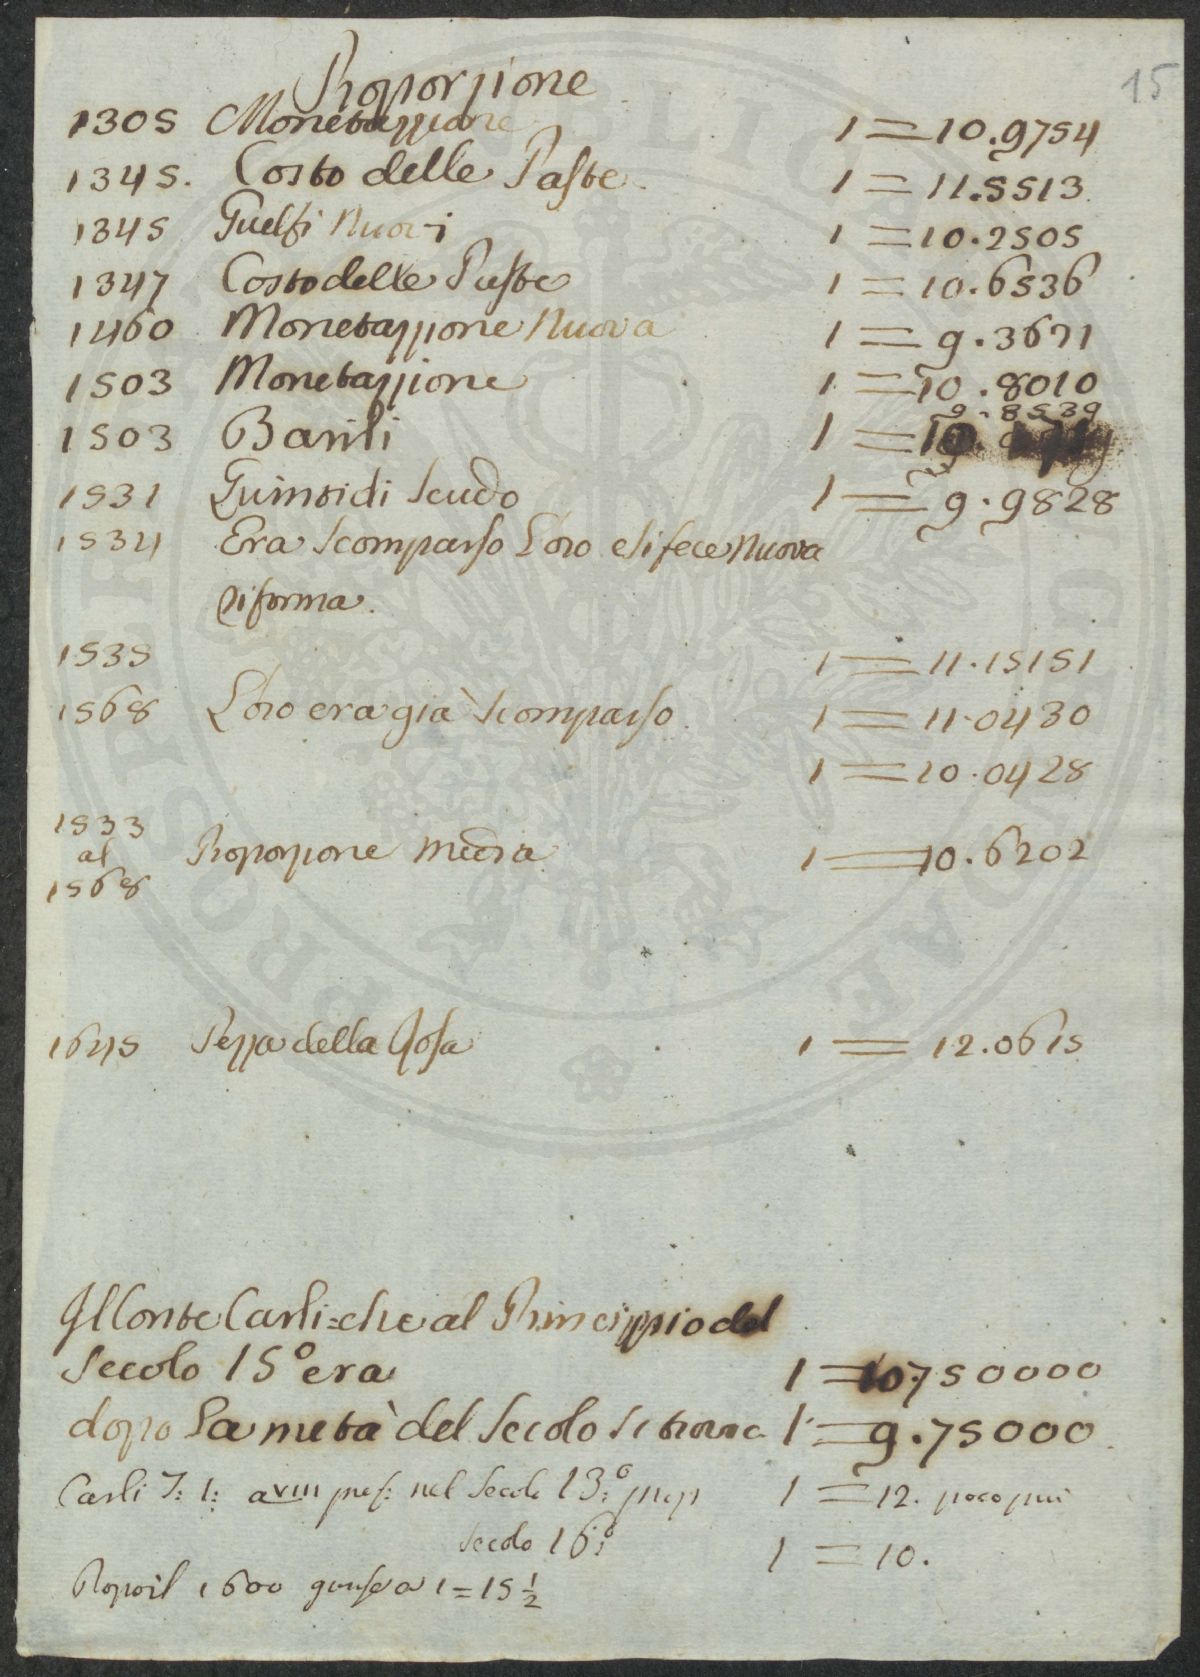 15
Proporzione
1305 Monetazzione 1 = 10.9754
1345. Costo delle Paste. 1 = 11.5513
1345 Guelfi Nuovi 1 = 10.2505
1347 Costo delle Paste 1 = 10.6536
1460 Monetazzione Nuova 1 = 9.3671
1503 Monetazzione 1 = 10.8010
9.8539
1503 Barili 1 =
1531 Quinto di Scudo 1 = 9.9828
1534 Era Scomparso L'oro e si fece Nuova
riforma.
1535 1 = 11.15151
1568 L'oro era già Scomparso. 1 = 11.0430
1 = 10.0428
1533
al Proporzione media 1 = 10.6202
1568
1645 Pezza della Rosa 1 = 12.0615
Il Conte Carli: che al Princippio del
Secolo 15° era 1 = 10.750000
dopo La metà del Secolo si trova 1 = 9.75000
Carli T: 1: nel Secolo 13:° 1 = 12. poco piu
Secolo 16:° 1 = 10.
Dopo il 1600 1 = 15 1/2
PROSPERITATI PUBLICAE